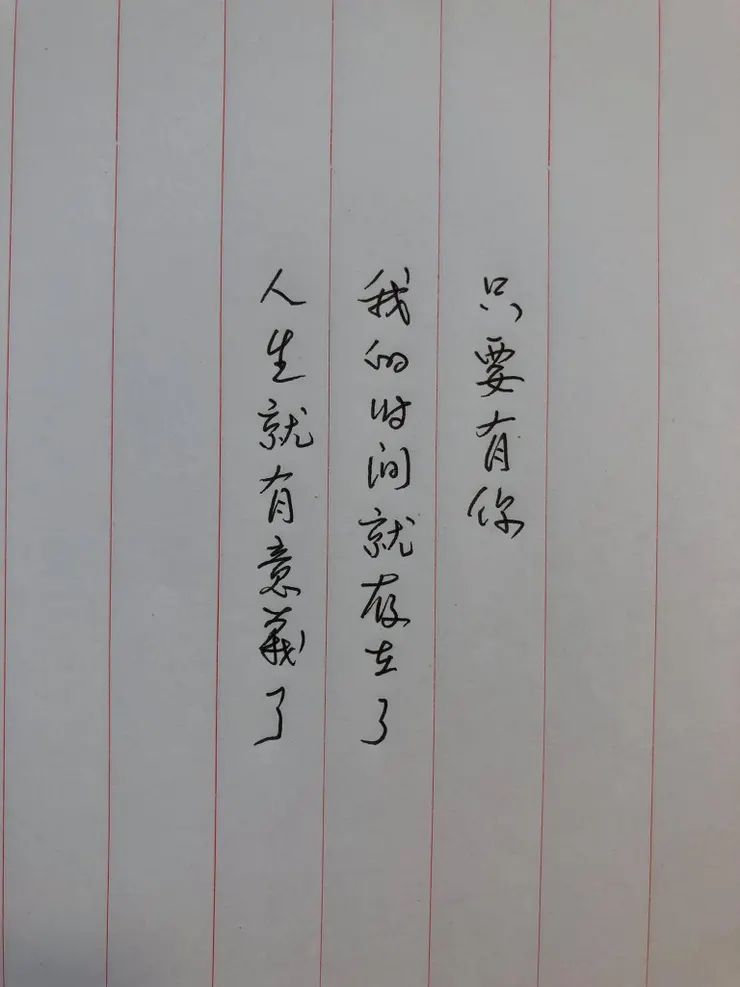 只要有你
我的时间就存在了
人生就有意義了